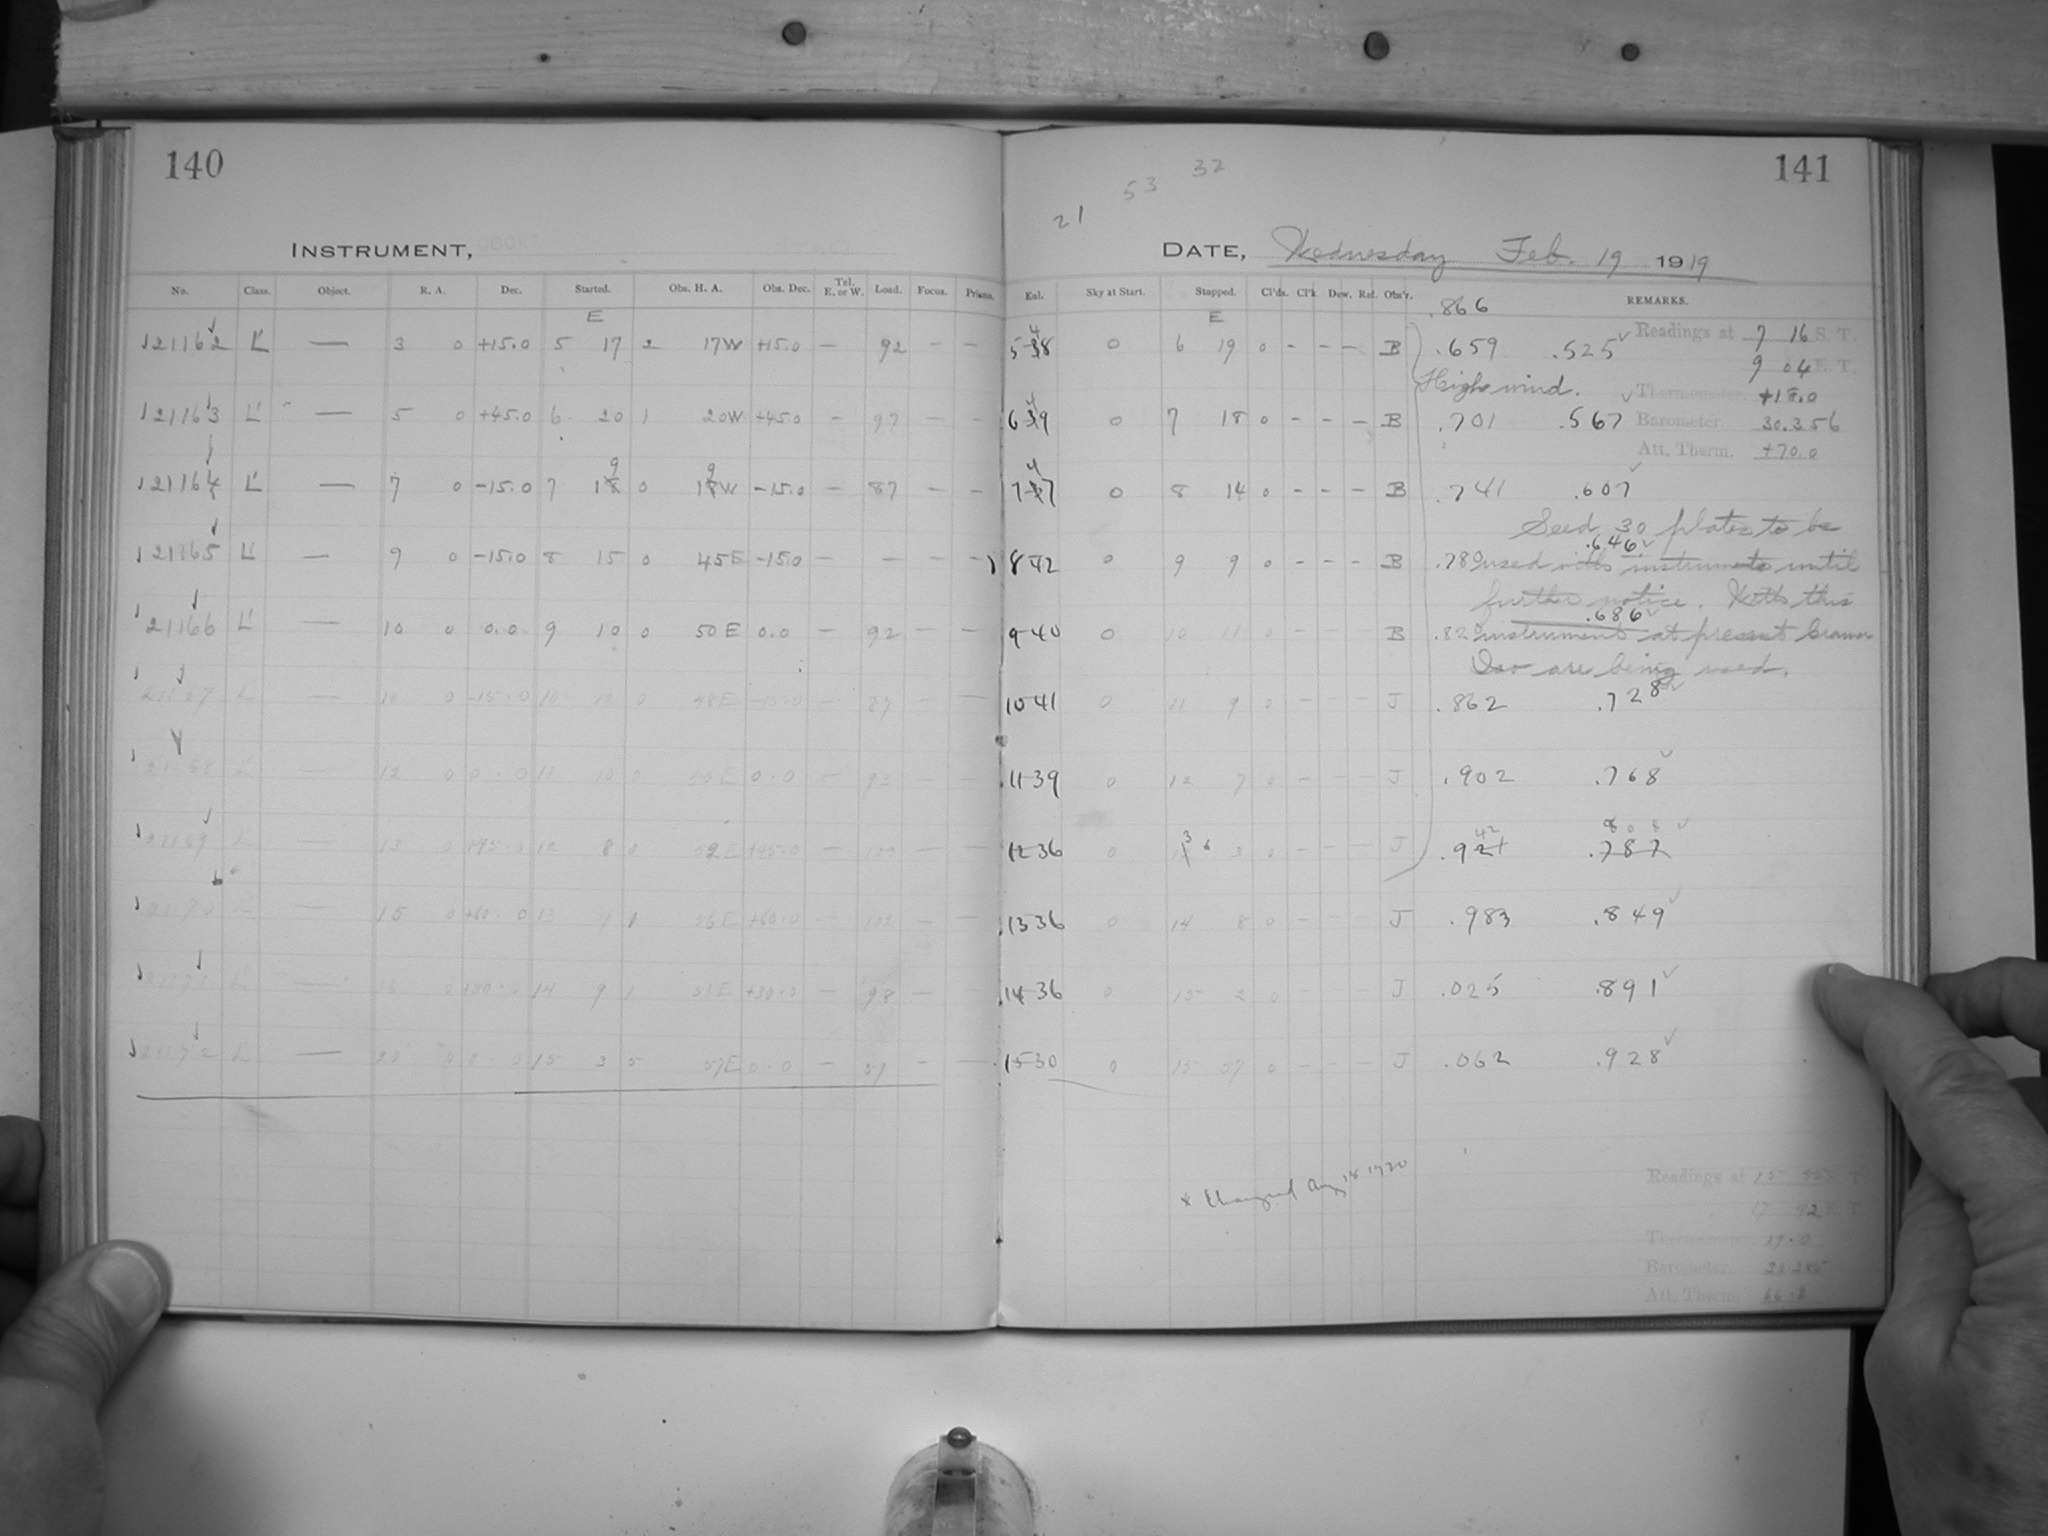 140
INSTRUMENT,
No. Class. Object. R. A. Dec. Started. Obs. H. A. Obs. Dec. Tel. E. or W. Load. Focus. Prisms.
E
21162 L' — 3 0 +15.0 5 17 2 17W +15.0 — 92 - -
21163 L' — 5 0 +45.0 6 20 1 20W +45.0 - 97 - -
9 9
21164 L' — 7 0 -15.0 7 18 0 18W -15.0 — 87 - -
21165 L' — 9 0 -15.0 8 15 0 45E -15.0 — - - -
21166 L' — 10 0 0.0 9 10 0 50E 0.0 — 92 - -
L' — 0 -15.0 10 0 48E -15.0 — 87 - -
L' — 12 0 0.0 11 10 0 50E 0.0 — 92 - -
L' — 13 0 +45.0 12 8 0 52E +45.0 —
L' — 15 0 +60.0 13 56E +60.0 —
L' — 16 0 +30.0 14 9 1 51E +30.0 — 98
L' — 20 0 0.0 15 3 5 57E 0.0 —
141
21 53 32
DATE, Wednesday Feb. 19 1919
Enl. Sky at Start. Stopped. Cl'ds. Cl'k. Dew. Ref. Obs'r. REMARKS.
.866
E
4
5-38 0 6 19 0 - - - B .659 .525
Readings at 7 16 S. T.
9 04 E. T.
High wind.
Thermometer. +18.0
4
6-39 0 7 18 0 - - - B .701 .567
Barometer. 30.356
Att. Therm. +70.0
4
7-37 0 8 14 0 - - - B .741 .607
Seed 30 plates to be
.646
8 42 0 9 9 0 - - - B .780 used with instruments until
further notice. With this
.686
9-40 0 10 11 0 - - - B .82 instrument at present Cramer
Iso are being used.
10-41 0 11 9 0 - - - J .862 .728
11-39 0 12 7 0 - - - J .902 .768
42 808
12-36 0 3 0 - - - J .921 .787
13-36 0 14 8 0 - - - J .983 .849
14-36 0 15 2 0 - - - J .025 .891
15-30 0 15 57 0 - - - J .062 .928
* Changed Aug 18 1920
Readings at 15 55 S. T.
17 42 E. T.
Thermometer. 17.0
Barometer.
Att. Therm. 66.2